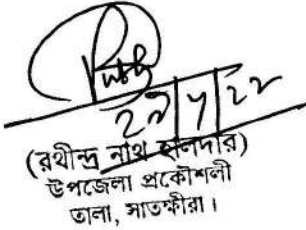 ২৭|৭|২২
(রথীন্দ্র নাথ হালদার)
উপজেলা প্রকৌশলী
তালা, সাতক্ষীরা।